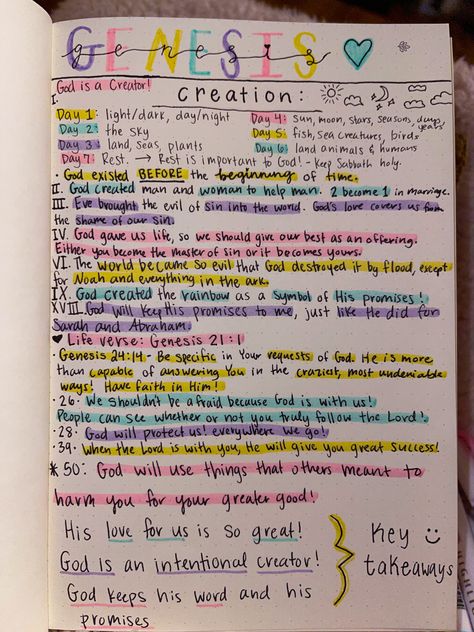 GENESIS
genesis
God is a Creator!
creation:
I.
Day 1: light/dark, day/night
Day 2: the sky
Day 3: land, seas, plants
Day 4: sun, moon, stars, seasons, days, years
Day 5: fish, sea creatures, birds
Day 6: land animals & humans
Day 7: Rest. → Rest is important to God! - keep Sabbath holy.
· God existed BEFORE the beginning of time.
II. God created man and woman to help man. 2 become 1 in marriage.
III. Eve brought the evil of sin into the world. God's love covers us from
the shame of our sin.
IV. God gave us life, so we should give our best as an offering.
Either you become the master of sin or it becomes yours.
VI. The world became so evil that God destroyed it by flood, except
for Noah and everything in the ark.
IX. God created the rainbow as a symbol of His promises!
XVIII. God will keep His promises to me, just like He did for
Sarah and Abraham.
♥ Life verse: Genesis 21:1
· Genesis 24:14 - Be specific in your requests of God. He is more
than capable of answering You in the craziest, most undeniable
ways! Have faith in Him!
· 26 - We shouldn't be afraid because God is with us!
People can see whether or not you truly follow the Lord!
· 28 - God will protect us! everywhere we go!
· 39 - When the Lord is with you, He will give you great success!
* 50: God will use things that others meant to
harm you for your greater good!
His love for us is so great!
God is an intentional creator!
God keeps his word and his
promises
Key
takeaways